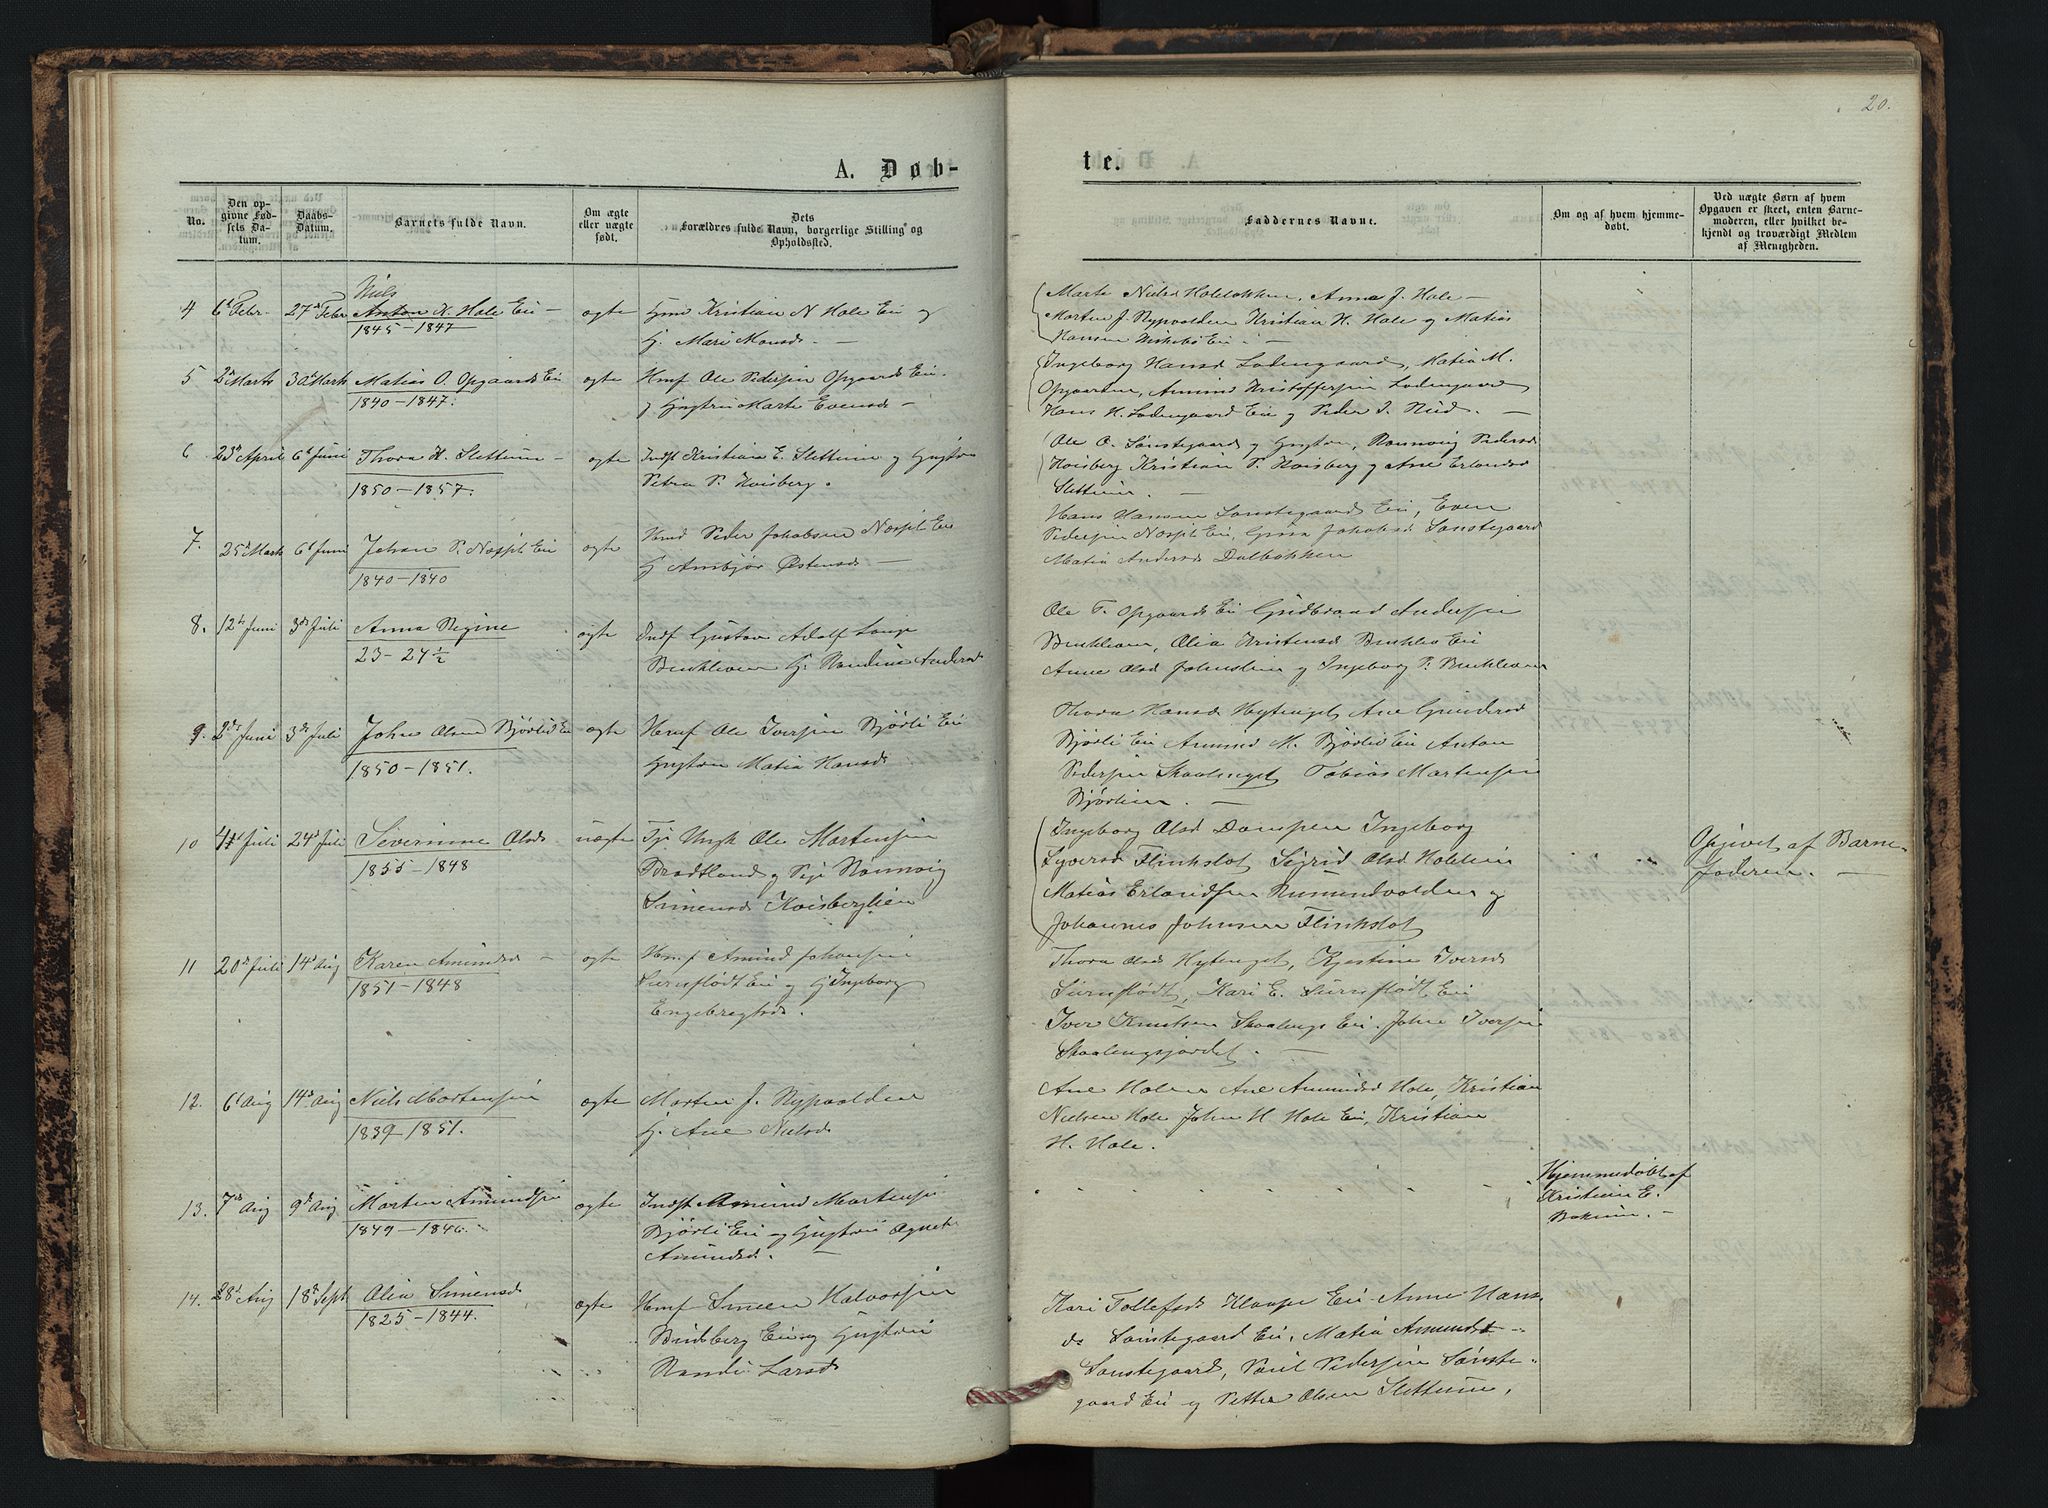 20.
A. Døb-
te.
No.
Den op-
givne Fød-
sels Da-
tum.
Daabs-
Datum.
Barnets fulde Navn.
Om ægte
eller uægte
født.
Dets
Forældres fulde Navn, borgerlige Stilling og
Opholdssted.
Faddernes Navne.
Om og af hvem hjemme-
døbt.
Ved uægte Børn af hvem
Opgaven er skeet, enten Barne-
moderen, eller hvilket be-
kjendt og troværdigt Medlem
af Menigheden.
Niels
4 6t Febr. 27d Febr Anton K. Hole Ei — ægte Hmd Kristian N Hole Ei og
1845 - 1847
H. Mari Monsd. —
Marte Nielsd Anna J. Hole —
Morten J. Rypvolden Kristian H. Hole og Matias
Hansen Ei. —
5 2d Marts 30d Mark Matias O. Opgaards Ei ægte Hmf Ole Pedersen Opgaards Ei.
1840 - 1847.
og Hustru Marte Evensd —
Ingeborg Hansd Lodengaard, Matia M.
Opgaarden, Amund Kristoffersen Lodengaard
Hans H. Lodengaard Ei og Peder J. Rud. —
6 23d April 6t Juni Thora K. Slettum — ægte Indst Kristian E. Slettum og Hustru
1850 - 1857.
Petra P. Hoisberg.
Ole O. Sønstegaard og Hustru, Rønnoug Pedersd
Hoisberg Kristian P. Hoisberg og Ane Erlandsd
Slettum. —
7. 25d Mark 6t Juni Johan P. Næspl. Ei ægte Hmd Peder Johabsen Næspl. Ei
1840 - 1840
H Ambjør Østensd —
Hans Hansen Sønstegaard Ei, Even
Pedersen Næspl Ei, Gura Jakobsd Sønstegaard
Matia Andersd Dalbakken
8. 12te Juni 3die Juli Anna Regine ægte Indf Gustav Adolf Lange
23 - 24½
H. Randine Andersd
Ole T. Opgaards Ei Gudbrand Andersen
Olia Kristensd Ei
Anne Olsd og Ingeborg P.
9. 2den Juni 3die Juli Johan Olsen Bjørlid Ei ægte Hmf Ole Iversen Bjørli Ei
1850 - 1851.
Hustru Matia Hansd
Thora Hansd Hytenget Ane Gundersd
Bjørli Ei Amund M. Bjørlid Ei Anton
Pedersen Skaalenget Tobias Martensen
Bjørlien. —
10 4t Juli 24d Juli Severinne Olsd uægte Tj: Ungk Ole Mortensen
1855 - 1848
Bradtland og Pige Rønnoug
Simensd Hoisberglien
Ingeborg Olsd Ingeborg
Syversd Flinkslot Sigrid Olsd Holelien
Matias Erlandsen og
Johannes Johnsen Flinkslot
Opgivet af Barne-
faderen. —
11 20d Juli 14d Aug Karen Amundsd — ægte Hmf Amund Johansen
1851 - 1848
Surnflødt Ei og H Ingeborg
Engebregtsd.
Thora Olsd Hytenget, Kjestine Iversd
Surnflødt, Kari E. Surnflødt Ei
Iver Knutsen Skaalengs Ei. John Iversen
Skaalengsjordet. —
12. 6t Aug 14d Aug Niels Mortensen ægte Morten J. Rypvolden
1839 - 1851.
H. Ane Nielsd
Ane Holen Ane Amundsd Hole, Kristian
Nielsen Hole John H Hole Ei, Kristian
H. Hole.
13. 7de Aug 9d Aug Morten Amundsen ægte Indst Amund Mortensen
1849 - 1846.
Bjørli Ei og Hustru Agnet
Amundsd. —
Hjemmedøbt af
Kristian E.
Bakum. —
14. 28d Aug 18d Sept Olia Simensd ægte Hmf Simen Halvorsen
1825 - 1844.
Bindsberg Ei og Hustru
Randi Larsd
Kari Tollefsd Klonpe Ei Anne Hans
ds Sønstegaard Ei. Matia Amundsd -
Sønstegaard, Poul Pedersen Sønste-
gaard Ei og Petter Olsen Slettum.